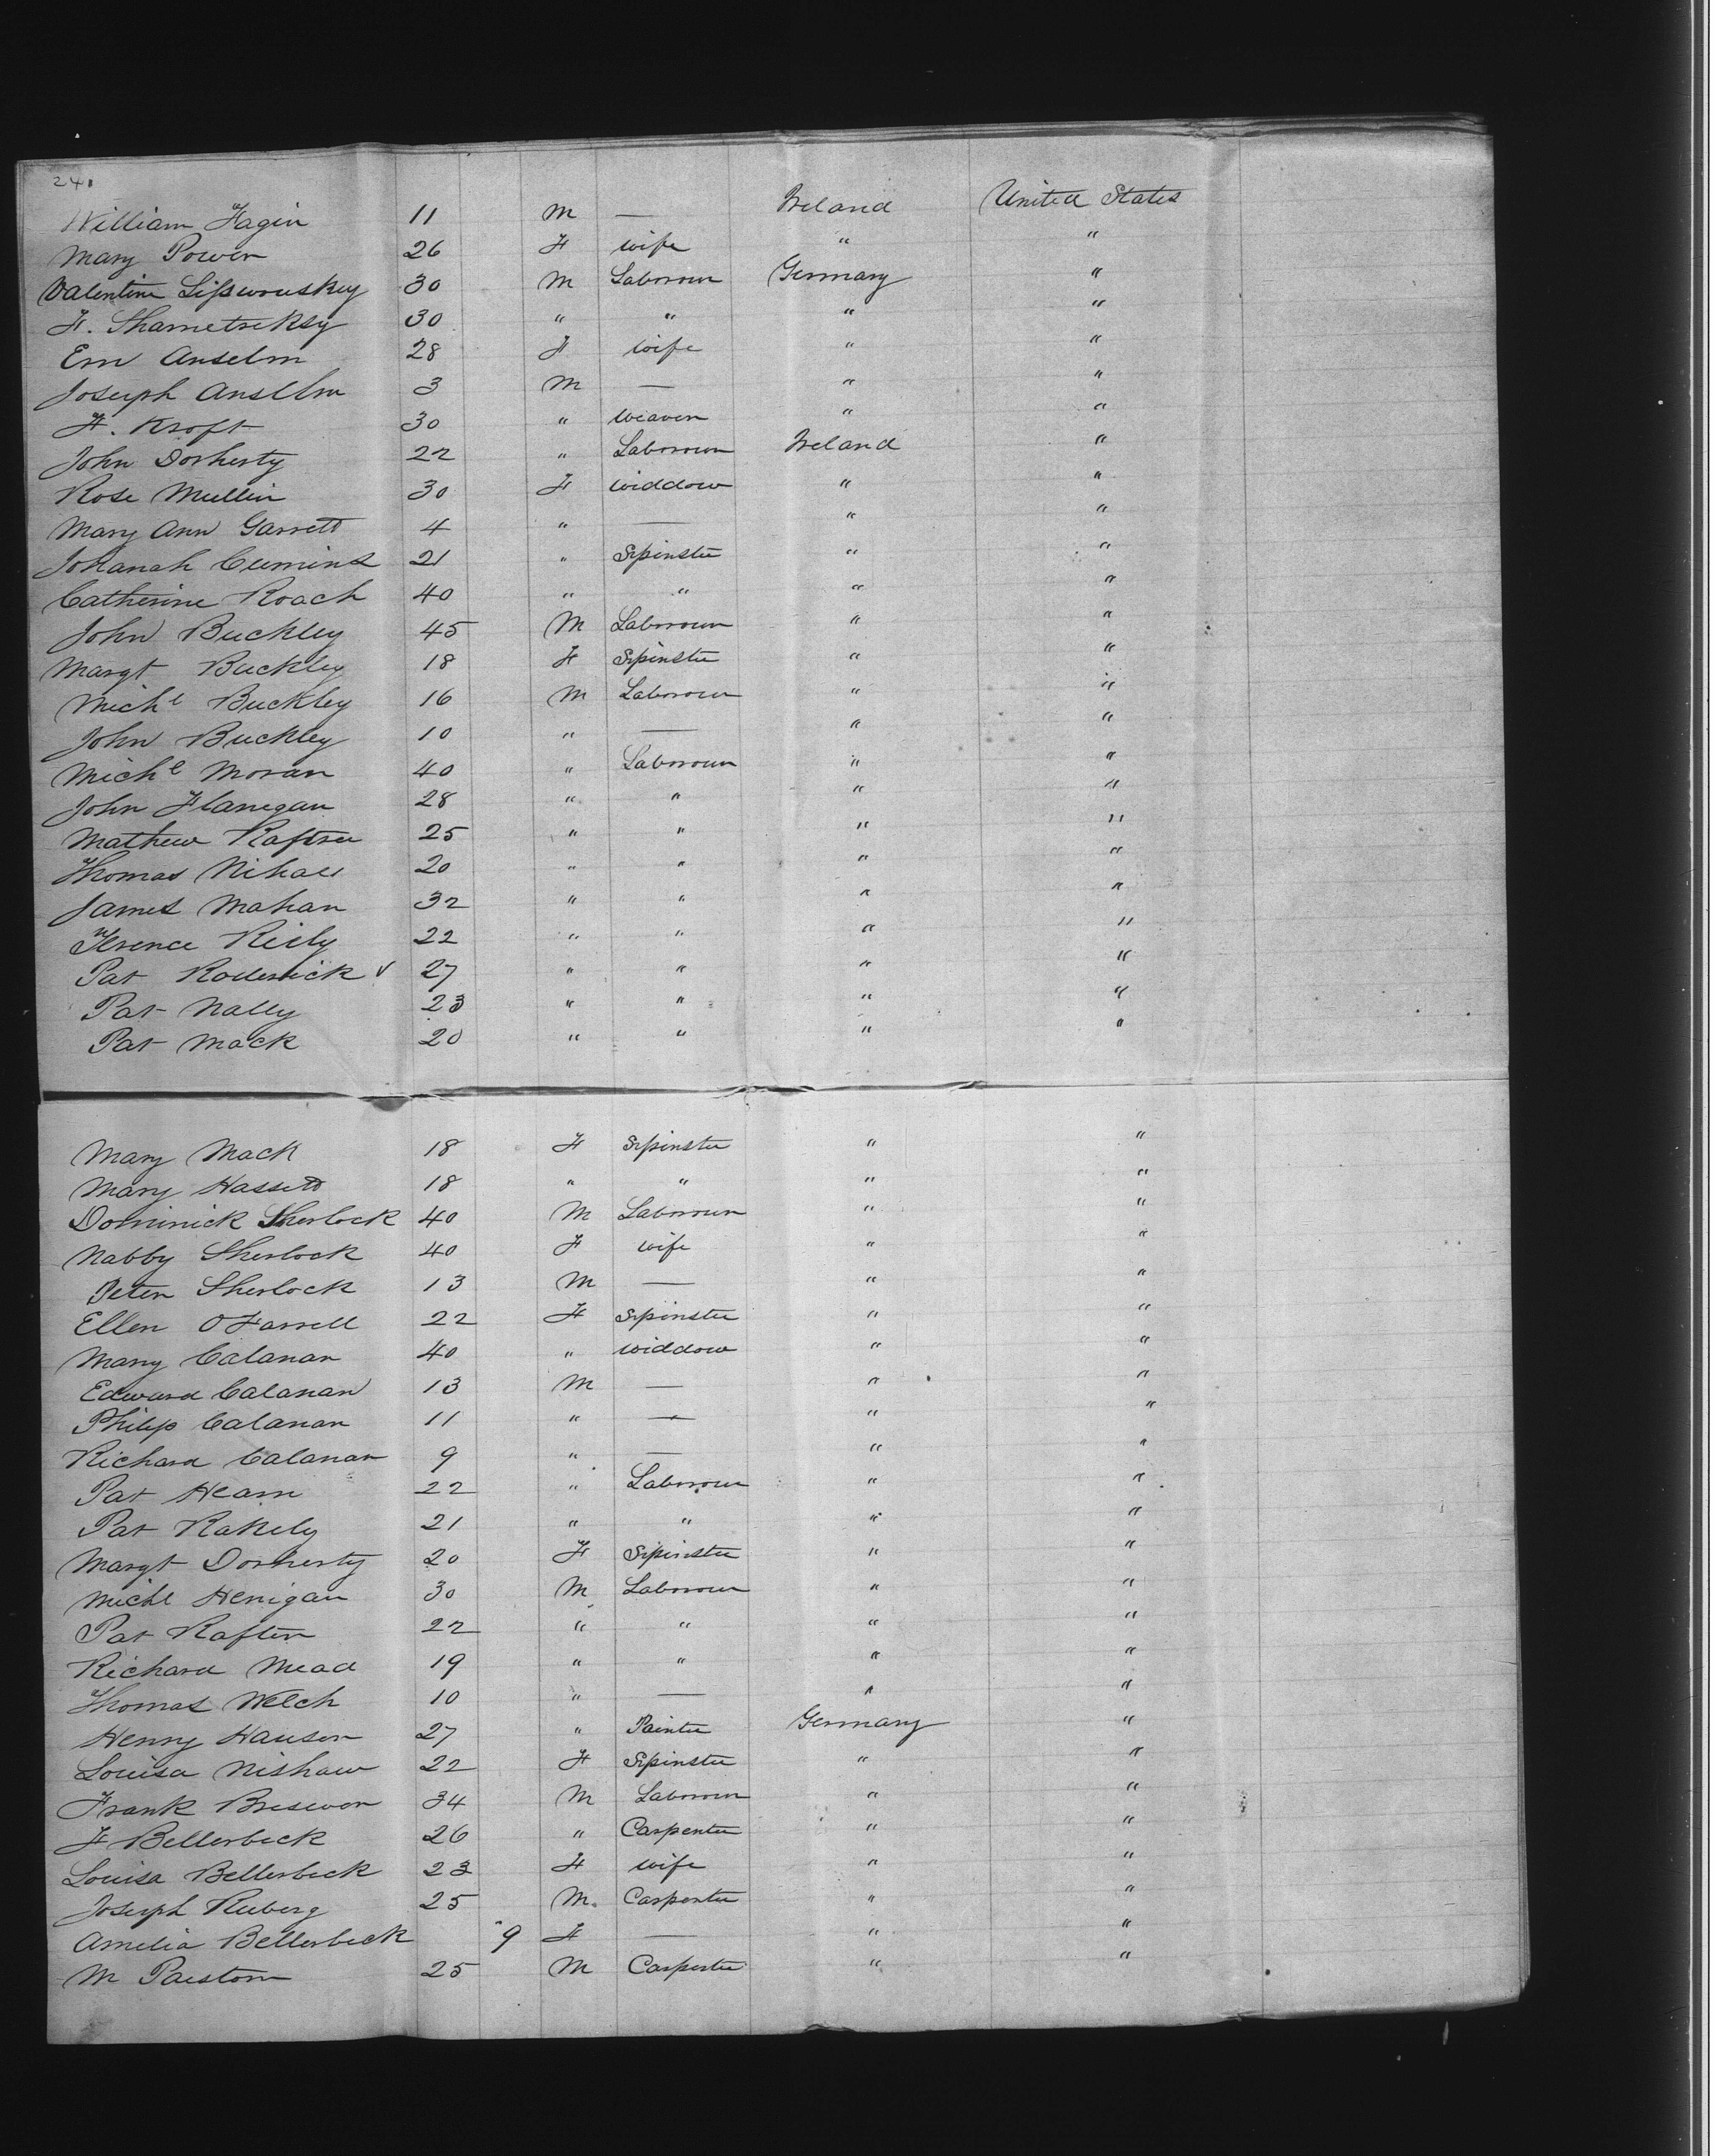 241
William Fagin 11 M — Ireland United States
Mary Power 26 F wife " "
Valentine 30 M Labororer Germany "
F. 30 " " " "
Em Anselm 28 F wife " "
Joseph Anselm 3 M — " "
F. Kroft 30 " weaver " "
John Dorherty 22 " Labororer Ireland "
Rose Mullin 30 F widdow " "
Mary Ann Garrett 4 " — " "
Johanah Cumins 21 " Spinster " "
Catherine Roach 40 " " " "
John Buckley 45 M Labororer " "
Margt Buckley 18 F Spinster " "
Michl Buckley 16 M Labororer " "
John Buckley 10 " — " "
Michl Moran 40 " Labororer " "
John Flanegan 28 " " " "
Mathew Raftree 25 " " " "
Thomas 20 " " " "
James Mahan 32 " " " "
Terence Riely 22 " " " "
Pat Roderick 27 " " " "
Pat Nally 23 " " " "
Pat Mack 20 " " " "
Mary Mack 18 F Spinster " "
Mary Hassett 18 " " " "
Dominick Sherlock 40 M Labororer " "
Nabby Sherlock 40 F wife " "
Peter Sherlock 13 M — " "
Ellen OFarrell 22 F Spinster " "
Mary Calanan 40 " widdow " "
Edward Calanan 13 M — " "
Philip Calanan 11 " — " "
Richard Calanan 9 " — " "
Pat Hearn 22 " Labororer " "
Pat Rakely 21 " " " "
Margt Dorherty 20 F Spinster " "
Michl Henigan 30 M Labororer " "
Pat Rafter 22 " " " "
Richard Mead 19 " " " "
Thomas Welch 10 " — " "
Henry Hausen 27 " Painter Germany "
Louisa Nishaw 22 F Spinster " "
Frank 34 M Labororer " "
F Bellerbeck 26 " Carpenter " "
Louisa Bellerbeck 23 F wife " "
Joseph Ruberg 25 M. Carpenter " "
Amelia Bellerbeck " 9 F — " "
M 25 M Carpenter " "